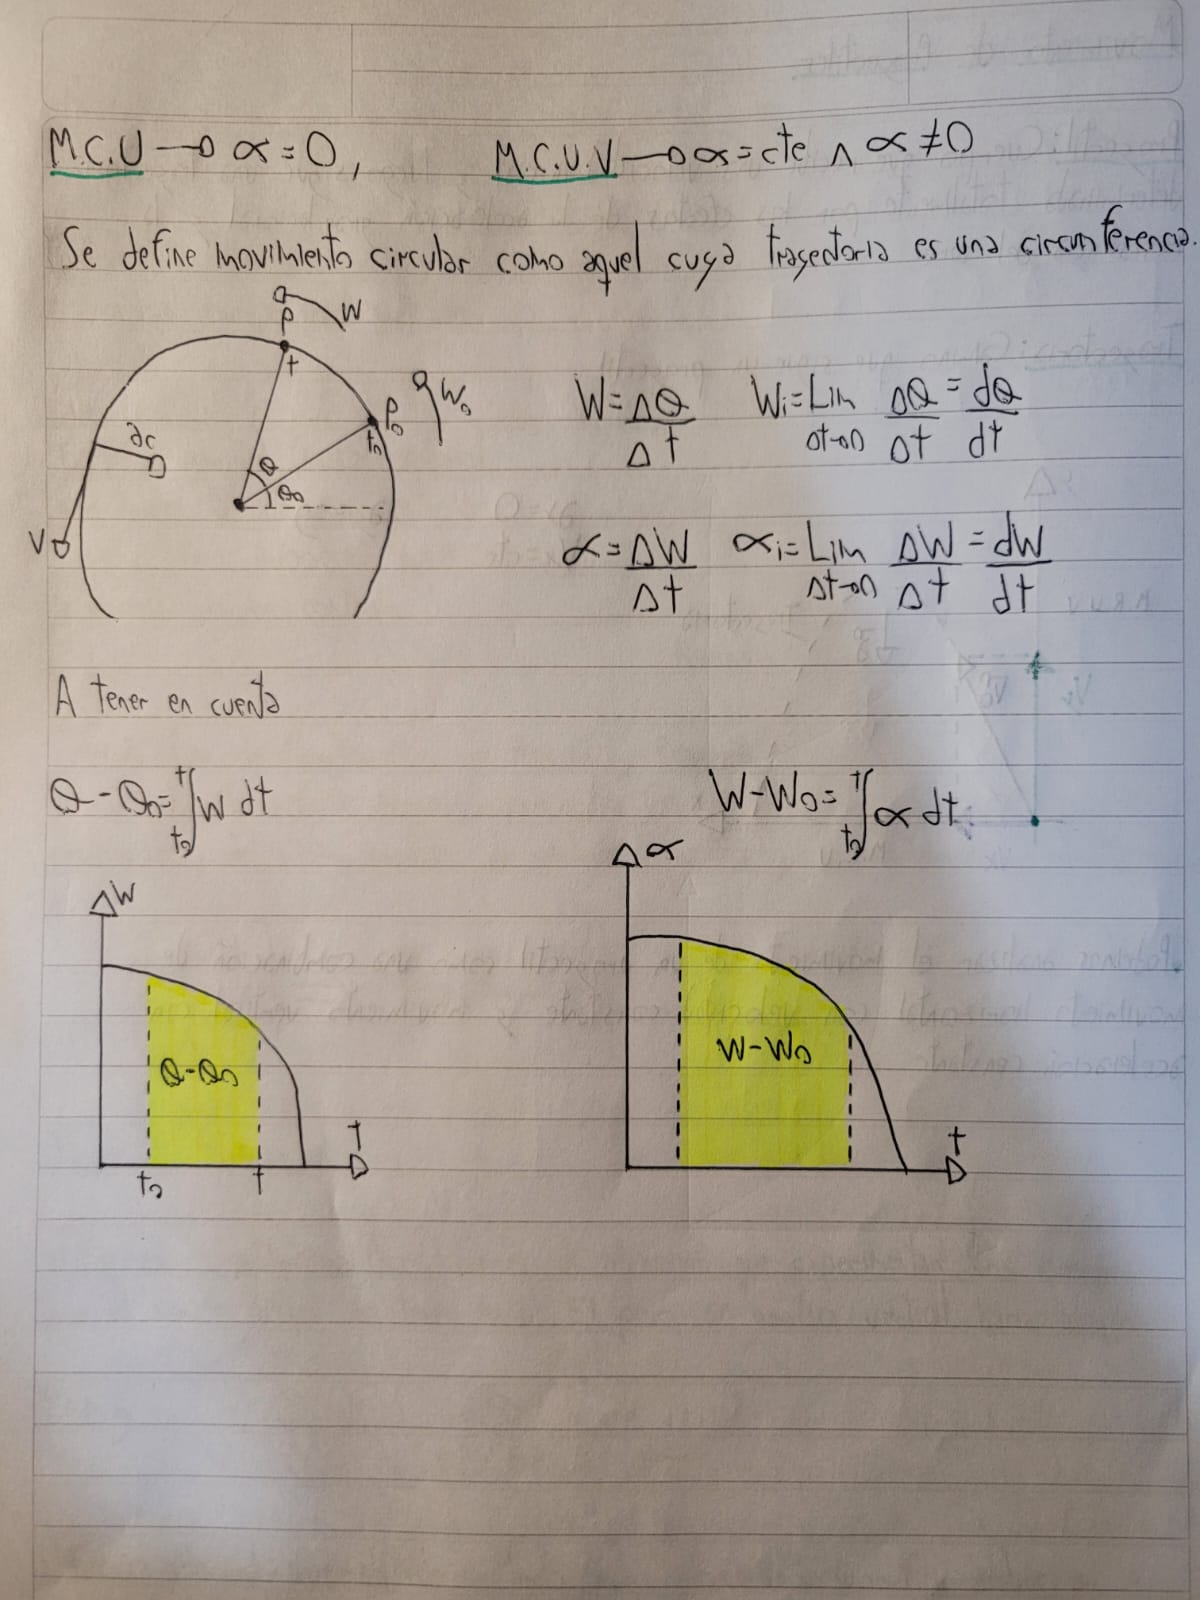 M.C.U → α = 0, M.C.U.V → α = cte ∧ α ≠ 0
Se define movimiento circular como aquel cuya trayectoria es una circunferencia.
P W
t
P₀ W₀
t₀
ac
θ
θ₀
V
W = Δθ/Δt Wi = Lim Δt→0 Δθ/Δt = dθ/dt
α = ΔW/Δt αi = Lim Δt→0 ΔW/Δt = dW/dt
A tener en cuenta
θ - θ₀ = ∫ₜ₀ᵗ W dt W - W₀ = ∫ₜ₀ᵗ α dt
W
θ - θ₀
t₀ t
T
α
W - W₀
t